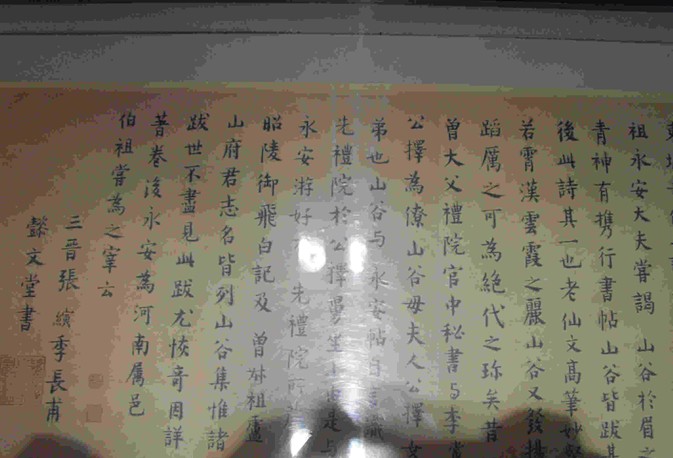 祖永安大夫嘗謁 山谷於眉之
青神有携行書帖山谷皆跋其
後此詩其一也老仙文高筆妙
若霄漢雲霞之麗山谷又發揚
蹈厲之可為絕代之珎矣昔
曾大父禮院官中秘書与李常
公擇為僚山谷母夫人公擇女
弟也山谷与永安帖自言識
先禮院於公擇舅坐上由是与
永安游好有 先禮院所
昭陵御飛白記及 曾叔祖盧
山府君志名皆列山谷集惟諸
跋世不盡見此跋尤恢奇因詳
著卷後永安為河南属邑
伯祖嘗為之宰云
三晋張縯季長甫
懿文堂書